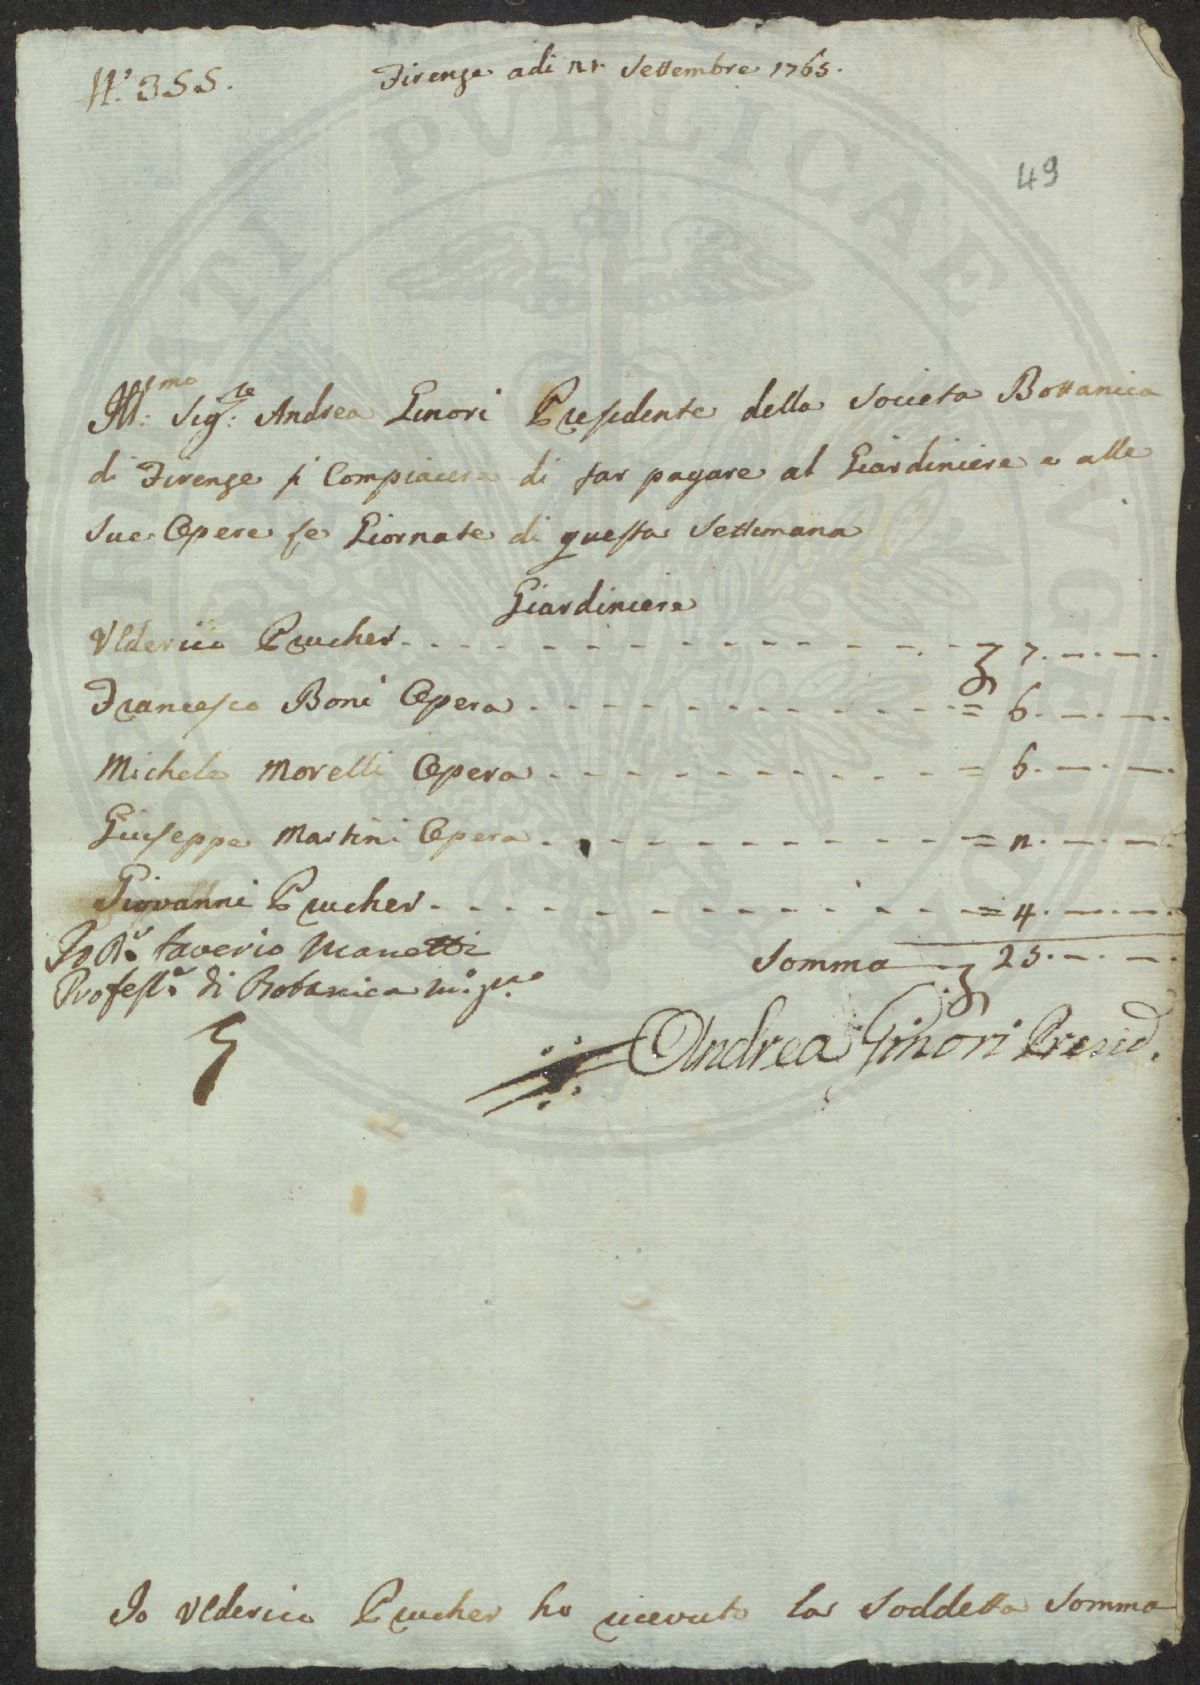 N.° 355.
Firenze adi 21 Settembre 1765.
49
Ill:mo Sig:re Andrea Ginori Presidente della Societa Bottanica
di Firenze si Compiacera di far pagare al Giardiniere e alle
sue Opere le Giornate di questa Settimana
Giardiniere
Ulderico Prucher - - - 7. — . —
Francesco Boni Opera - - - = 6. — . —
Michele Morelli Opera - - - = 6. — . —
Giuseppe Martini Opera - - - = 2. — . —
Giovanni Prucher - - - = 4. — . —
Somma — 25. — . —
Io D.r Saverio Manetti
Profess.r di Botanica m.o p.a
Andrea Ginori Presid.
Io Ulderico Prucher ho ricevuto la Soddetta Somma
PVBLICAE